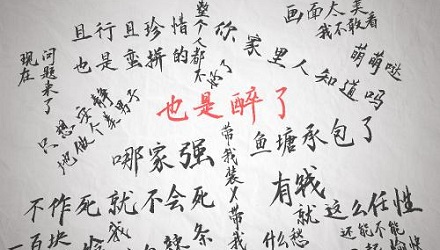 画面太美
我不敢看
且行且珍惜
整个人都不好了
你家里人知道吗
也是蛮拼的
萌萌哒
现在
问题来了
只想安静
地做个美男子
也是醉了
哪家强
带我装X带我
鱼塘承包了
有钱
就这么任性
不作死就不会死
还能不能
什么愁
一百块
我
条